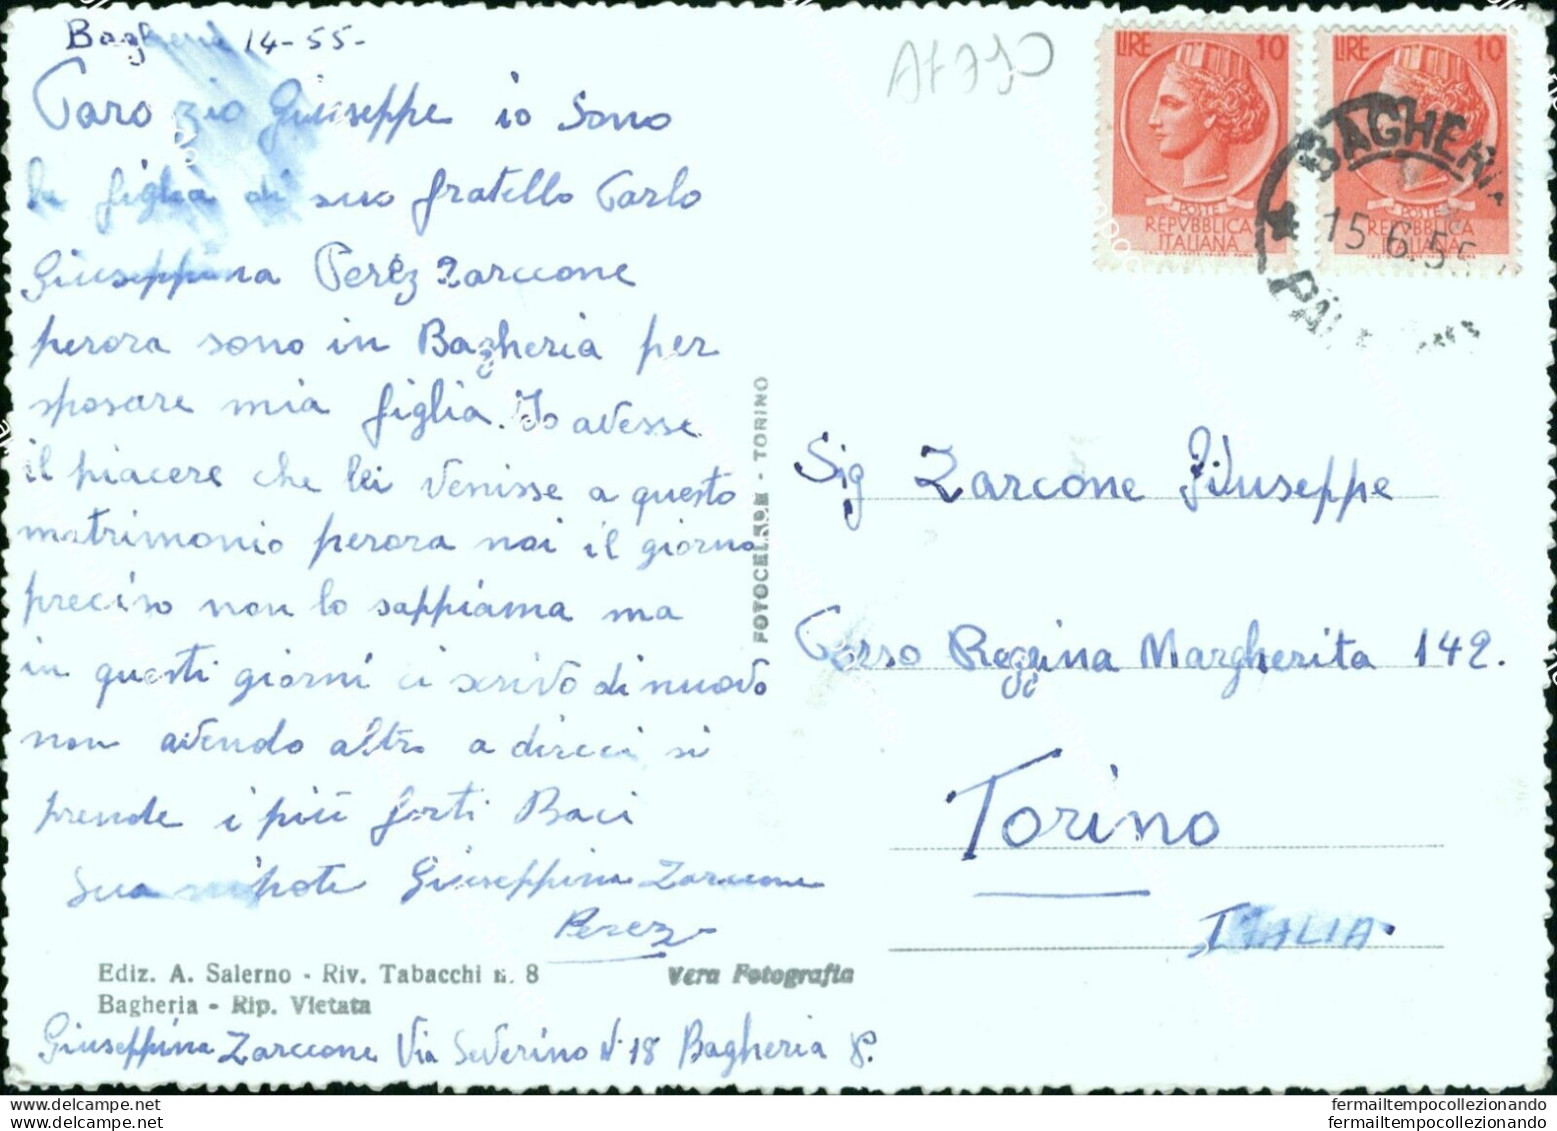 Bagheria 14-55-
Caro zio Giuseppe io sono
la figlia di suo fratello Carlo
Giuseppina Perez Zarccone
perora sono in Bagheria per
sposare mia figlia. Io avesse
il piacere che lei venisse a questo
matrimonio perora noi il giorno
preciso non lo sappiamo ma
in questi giorni ci scrivo di nuovo
non avendo altro a direci si
prende i più forti Baci
Sua nipote Giuseppina Zarccone
Perez
Ediz. A. Salerno - Riv. Tabacchi n. 8
Bagheria - Rip. Vietata
Vera Fotografia
Giuseppina Zarccone Via Severino N. 18 Bagheria P.
FOTOCELERE - TORINO
AF790
LIRE 10
POSTE
REPVBBLICA
ITALIANA
LIRE 10
POSTE
REPVBBLICA
ITALIANA
BAGHERIA
15.6.55
PALERMO
Sig Zarcone Giuseppe
Corso Reggina Margherita 142.
Torino
ITALIA
fermailtempocollezionando
fermailtempocollezionando
fermailtempocollezionando
fermailtempocollezionando